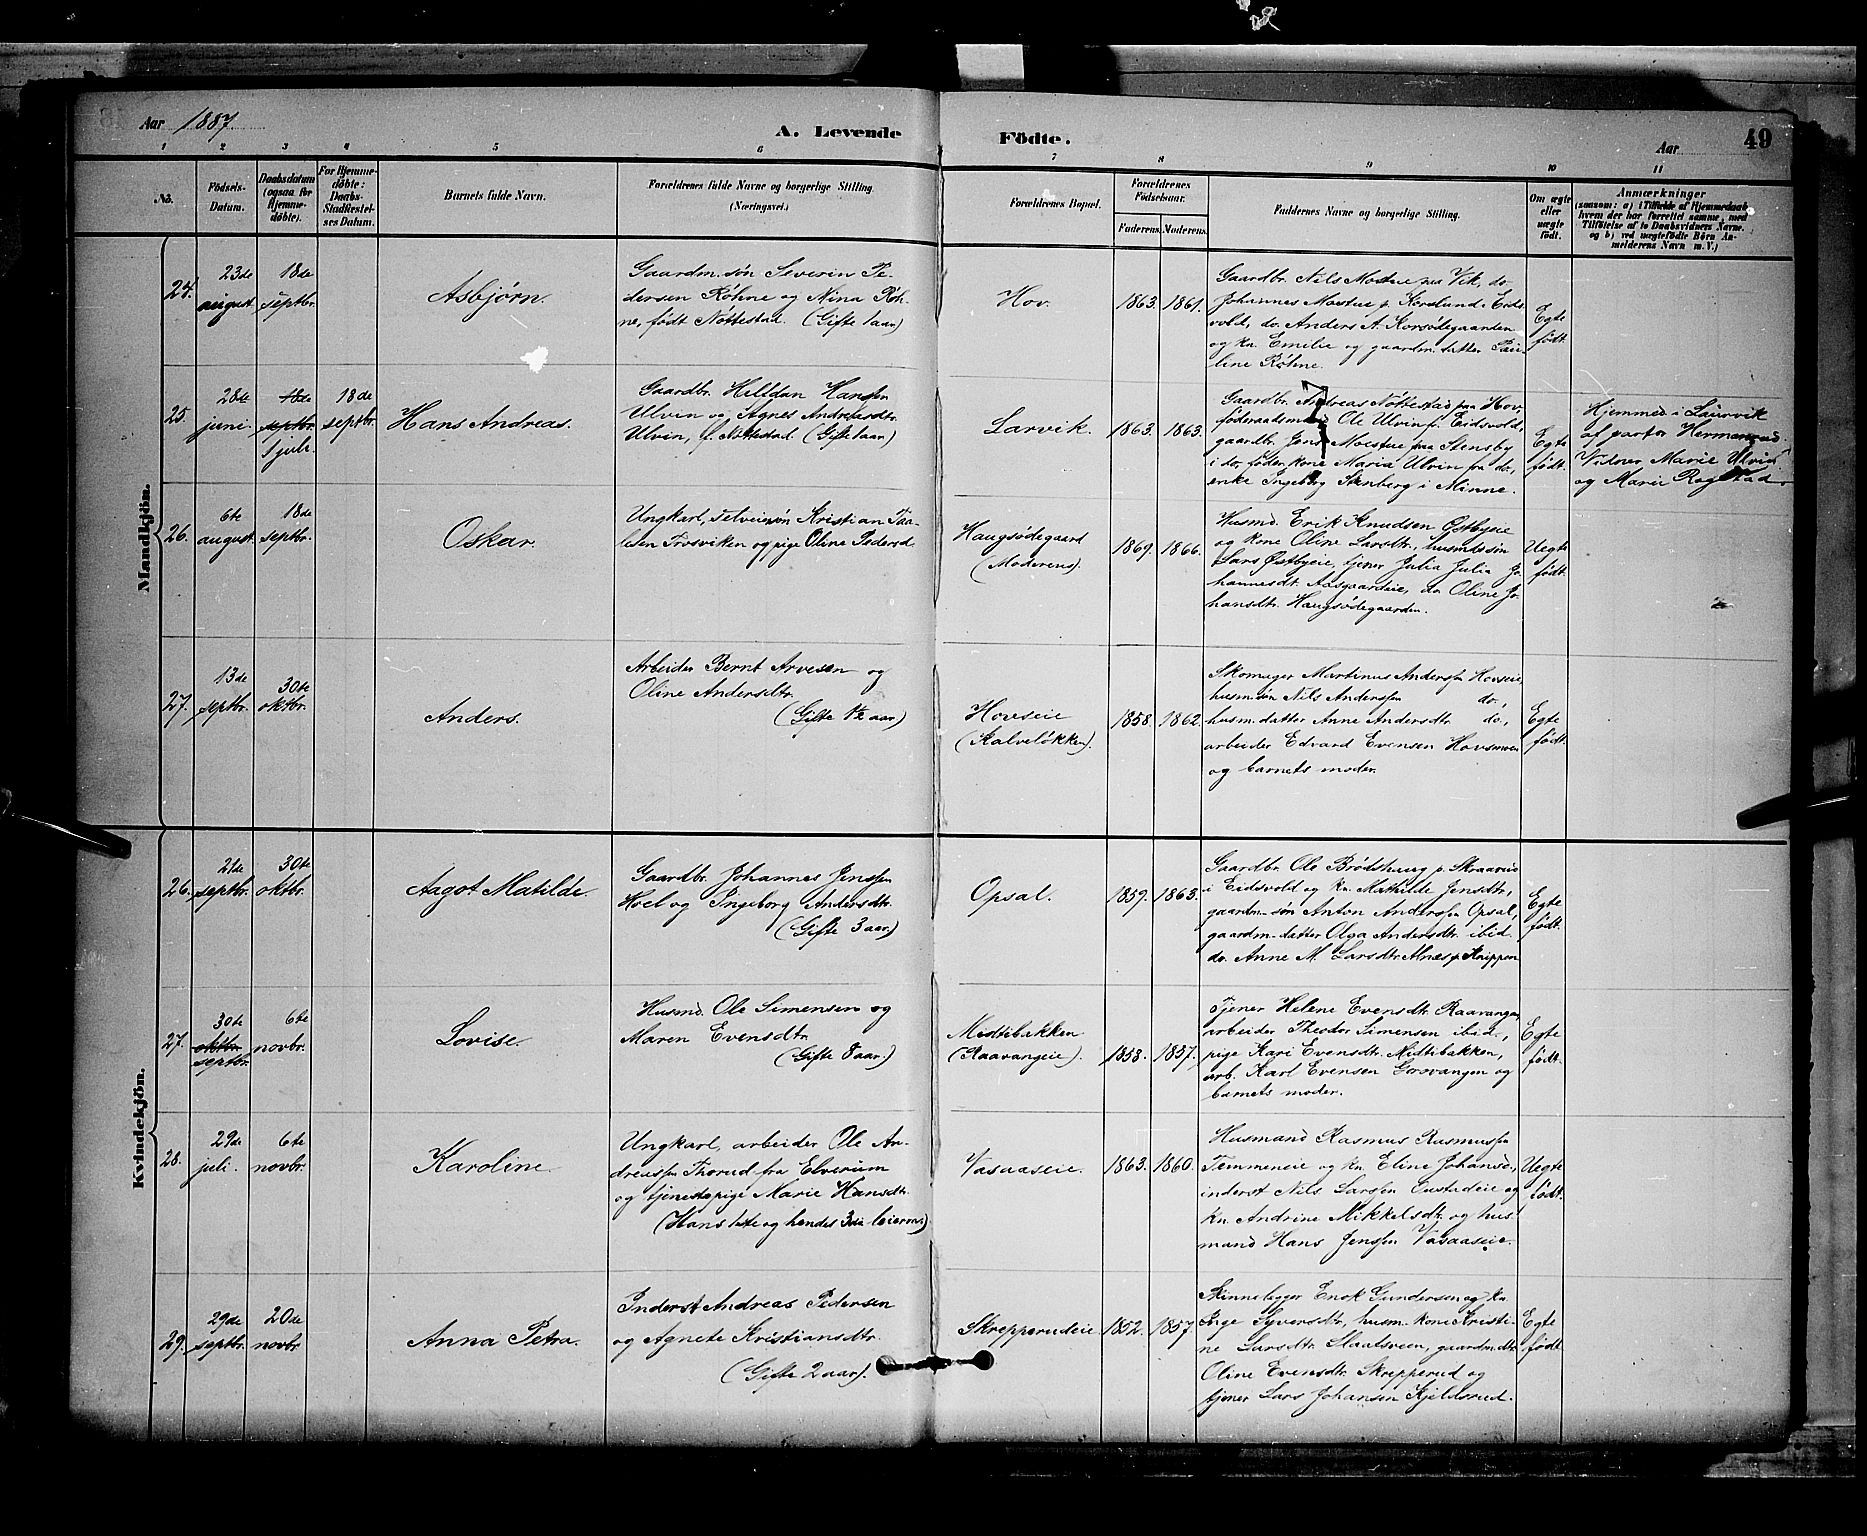 Aar 1887.
A. Levende
Födte.
Aar
49
1 2 3 4 5 6 7 8 9 10 11
No.
Födsels-
Datum.
Daabsdatum
(ogsaa for
Hjemme-
döbte).
For Hjemme-
döbte:
Daabs-
Stadfæstel-
ses Datum.
Barnets fulde Navn.
Forældrenes fulde Navne og borgerlige Stilling
(Næringsvei.)
Forældrenes Bopæl.
Forældrenes
Födselsaar.
Faderens. Moderens.
Faddernes Navne og borgerlige Stilling.
Om ægte
eller
uægte
födt.
Anmærkninger
(saasom: a) i Tilfælde af Hjemmedaab
hvem der har forrettet samme, med
Tilföielse af to Daabsvidners Navne.
og b) ved uægtefödte Börn An-
melderens Navn m. V.)
Mandkjön.
24.
23de
august
18de
septbr.
Asbjørn.
Gaardm. søn Severin Pe-
dersen Röhne og Nina Röh-
ne, født Nöttestad. (Gifte 1 aar)
Hov.
1863. 1861.
Gaardbr. Nils Moestue paa Vik, do.
Johannes Moestue p. Korslund i Eids-
vold, do. Anders A. Korsödegaarden
og kn. Emelie og gaardm. datter Pau-
line Röhne.
Egte
født.
25.
28de
juni.
18de
septbr.
1 juli.
18de
septbr.
Hans Andreas.
Gaardbr. Helldan Hansen
Ulvin og Agnes Andreasdtr.
Ulvin, f. Nöttestad. (Gifte 1 aar)
Larvik.
1863. 1863.
Gaardbr. Andreas Nöttestad paa Hov,
föderaadsmand Ole Ulvin fr. Eidsvold,
gaardbr. Jens Moestue paa Stensby
i do, føder. kone Maria Ulvin fra do.,
enke Ingeborg Stenberg i Minne.
Egte
født.
Hjemmed. i Laurvik
af pastor Hermanrud.
Vidner Marie Ulvin
og Marie Rogstad.
26.
6te
august.
18de
septbr.
Oskar.
Ungkarl, Selveiersøn Kristian Paa-
lesen Trosviken og pige Oline Pedersd.
Haugsödegaard
(Moderens).
1869. 1866.
Husmd. Erik Knudsen Østbyeie
og kone Oline Larsdtr., husmdssön
Lars Østbyeie, tjener Julia Julia Jo-
hannesdt. Aasgaardeie, do. Oline Jo-
hansdtr. Haugsödegaarden.
Uegte
født.
27.
13de
septbr.
30te
oktbr.
Anders.
Arbeider Bernt Arvesen og
Oline Andersdtr.
(Gifte 1½ aar)
Hovseie
(Kalveløkken).
1858. 1862.
Skomager Martinus Anderssen Hovseie,
husm. søn Nils Anderssen do.,
husm. datter Anne Andersdtr. do.,
arbeider Edvard Evensen Hovsmoen
og barnets moder.
Egte
født.
Kvindekjön.
26.
21de
septbr.
30te
oktbr.
Aagot Matilde.
Gaardbr. Johannes Jenssen
Hoel og Ingeborg Andersdtr.
(Gifte 3 aar.)
Opsal.
1859. 1863.
Gaardbr. Ole Brødshaug p.
i Eidsvold og kn. Mathilde Jensdtr.,
gaardm. søn Anton Anderssen Opsal,
gaardm. datter Olga Andersdtr. ibid.
do. Anne M. Larsdtr. Alnæs p. Knippen
Egte
født.
27.
30te
oktbr.
septbr.
6te
novbr.
Lovise.
Husmd. Ole Simensen og
Maren Evensdtr.
(Gifte 8 aar.)
Midtibakken
(Raavangeie).
1858. 1857.
Tjener Helene Evensdtr. Raavangen,
arbeider Theodor Simensen ibid.,
pige Kari Evensdtr. Midtibakken,
arb. Karl Evensen Gorovangen og
barnets moder.
Egte
født.
28.
29de
juli.
6te
novbr.
Karoline.
Ungkarl, arbeider Ole An-
dreassen Thorud fra Elverum
og tjenestepige Marie Hansdtr.
(Hans 1ste og hendes 3die leierm.)
Vasaaseie.
1863. 1860.
Husmand Rasmus Rasmussen
Temmeneie og kn. Eline Johansd.,
inderst Nils Larssen Oustadeie og
kn. Andrine Mikkelsdtr. og hus-
mand Hans Jenssen Vasaaseie.
Uegte
født.
29.
29de
septbr.
20de
novbr.
Anna Petra.
Inderst Andreas Pedersen
og Agnete Kristiansdtr.
(Gifte 2 aar).
Skrepperudeie
1852. 1857.
Skinnelægger Enok Gundersen og kn.
Inge Syversdtr, husm. kone Kristi-
ne Larsdtr. Slaatsveen, gaardm. dtr.
Oline Evensdtr. Skrepperud og
tjener Lars Johansen Kjeldsrud.
Egte
født.